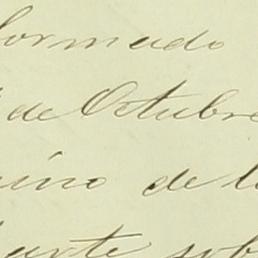 formado
de Octubre
ino de l
arte sob